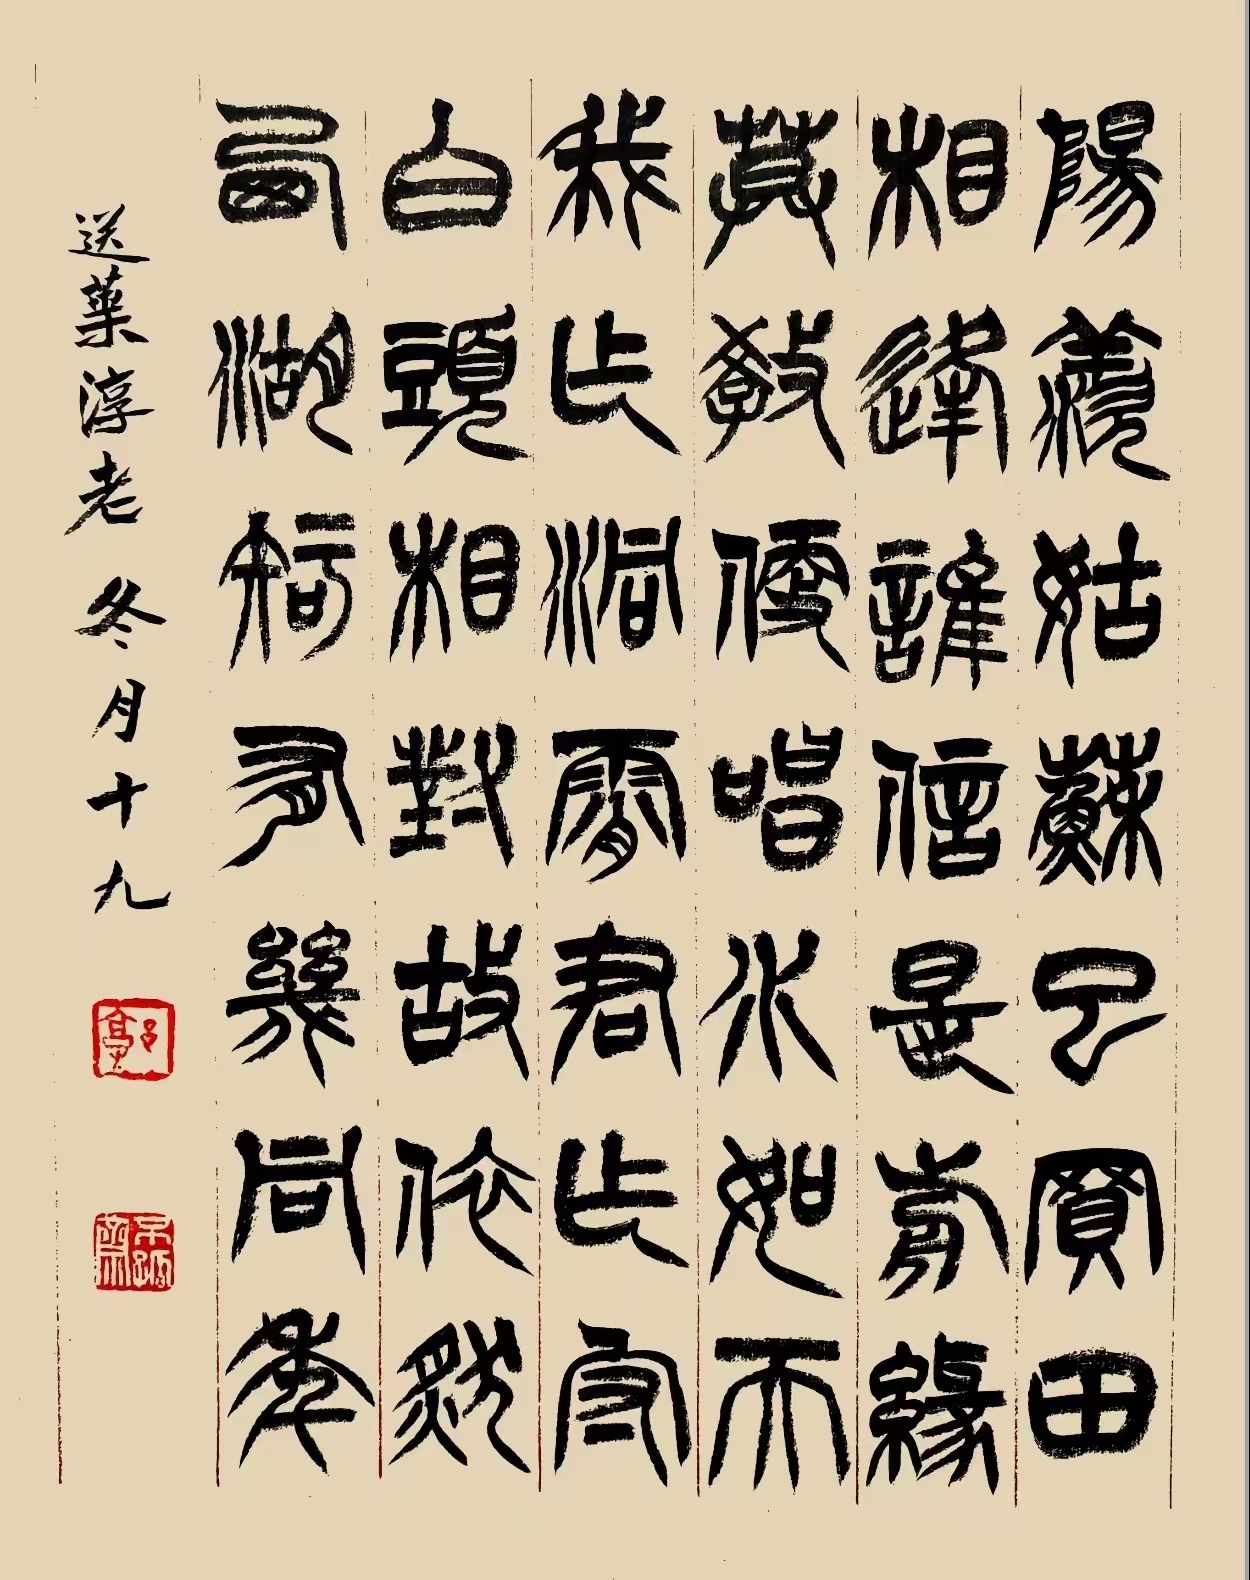 陽羨姑蘇已買田
相逢誰信是前緣
莫教便唱水如天
我作洞霄君作守
白頭相對故依然
西湖知有幾同年
送葉淳老 冬月十九